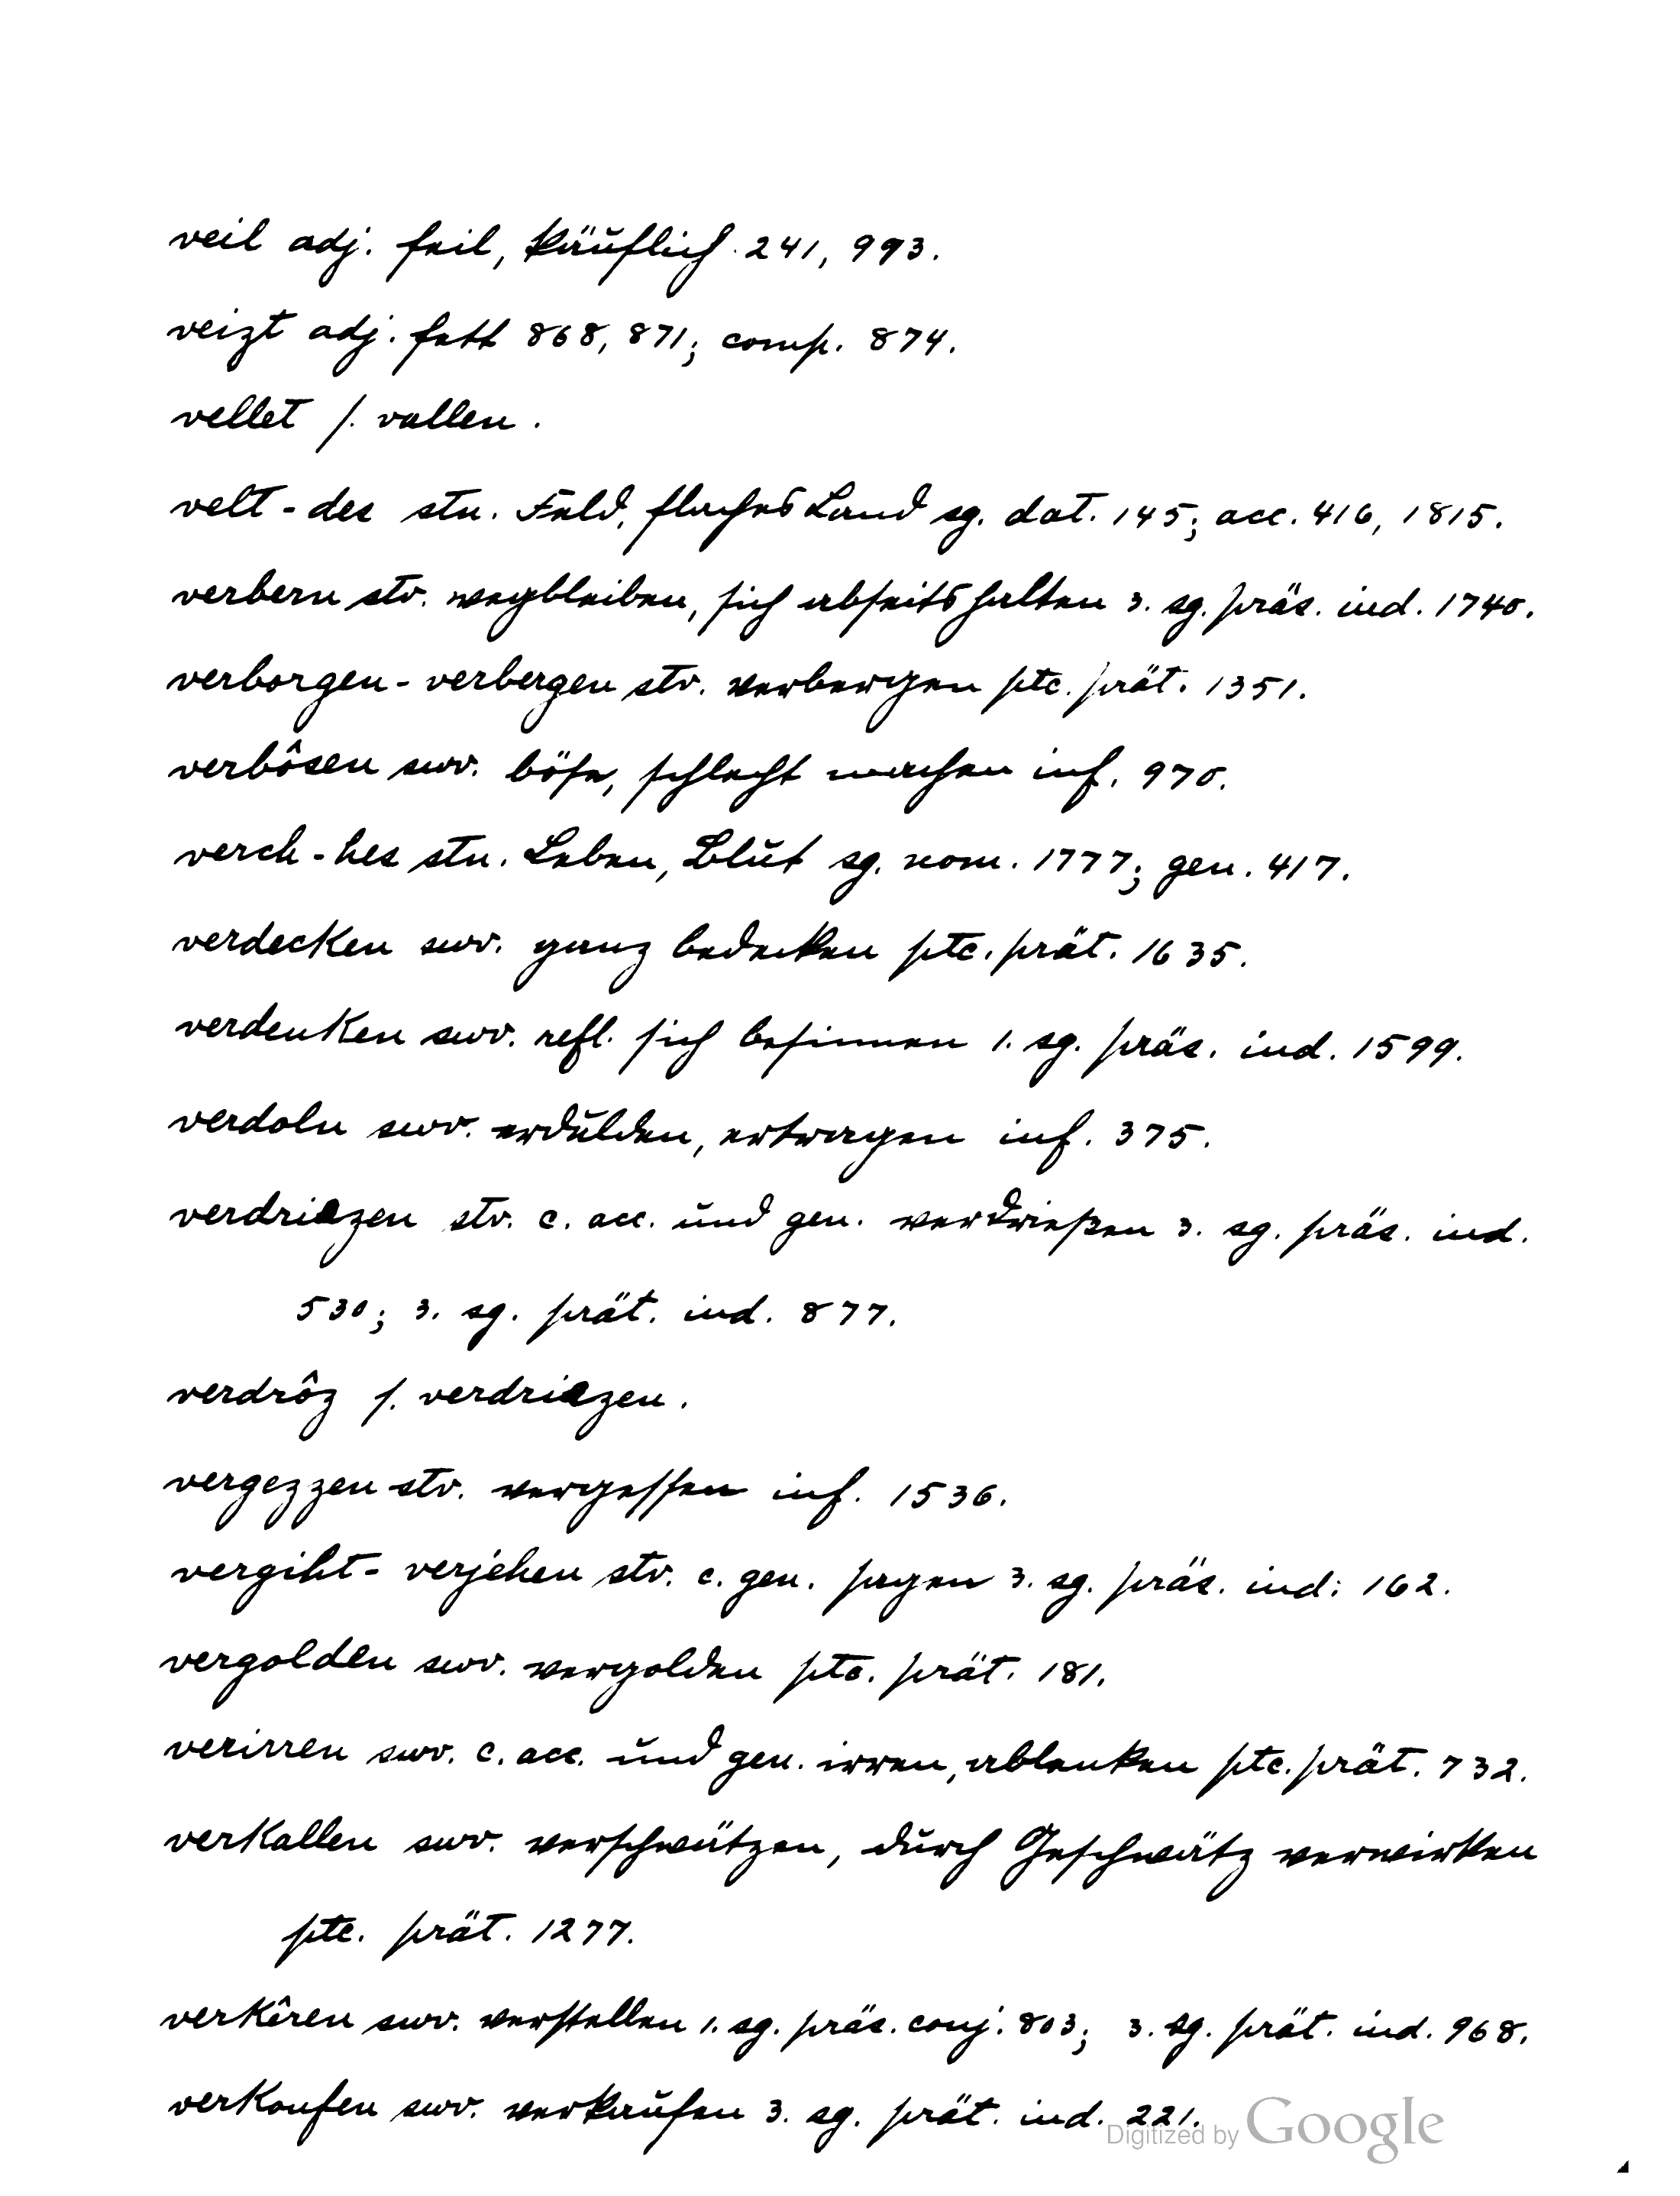 veil adj. feil, käuflich 241, 993.
veizt adj. fett 868, 871; comp. 874.
vellet s. vallen.
velt-des stn. Feld, flaches Land sg. dat. 145; acc. 416, 1815.
verbern stv. wegbleiben, sich abseits halten 3. sg. präs. ind. 1740.
verborgen-verbergen stv. verbergen ptc. prät. 1351.
verbôsen swv. böse, schlecht machen inf. 970.
verch-hes stn. Leben, Blut sg. nom. 1777; gen. 417.
verdecken swv. ganz bedecken ptc. prät. 1635.
verdenken swv. refl. sich besinnen 1. sg. präs. ind. 1599.
verdoln swv. erdulden, ertragen inf. 375.
verdriezen stv. c. acc. und gen. verdrießen 3. sg. präs. ind.
530; 3. sg. prät. ind. 877.
verdrôz s. verdriezen.
vergezzen stv. vergessen inf. 1536.
vergiht-verjehen stv. c. gen. sagen 3. sg. präs. ind: 162.
vergolden swv. vergolden ptc. prät. 181.
verirren swv. c. acc. und gen. irren, ablenken ptc. prät. 732.
verkallen swv. verschwätzen, durch Geschwätz verwirken
ptc. prät. 1277.
verkêren swv. verstellen 1. sg. präs. conj. 803; 3. sg. prät. ind. 968.
verkoufen swv. verkaufen 3. sg. prät. ind. 221.
Digitized by Google